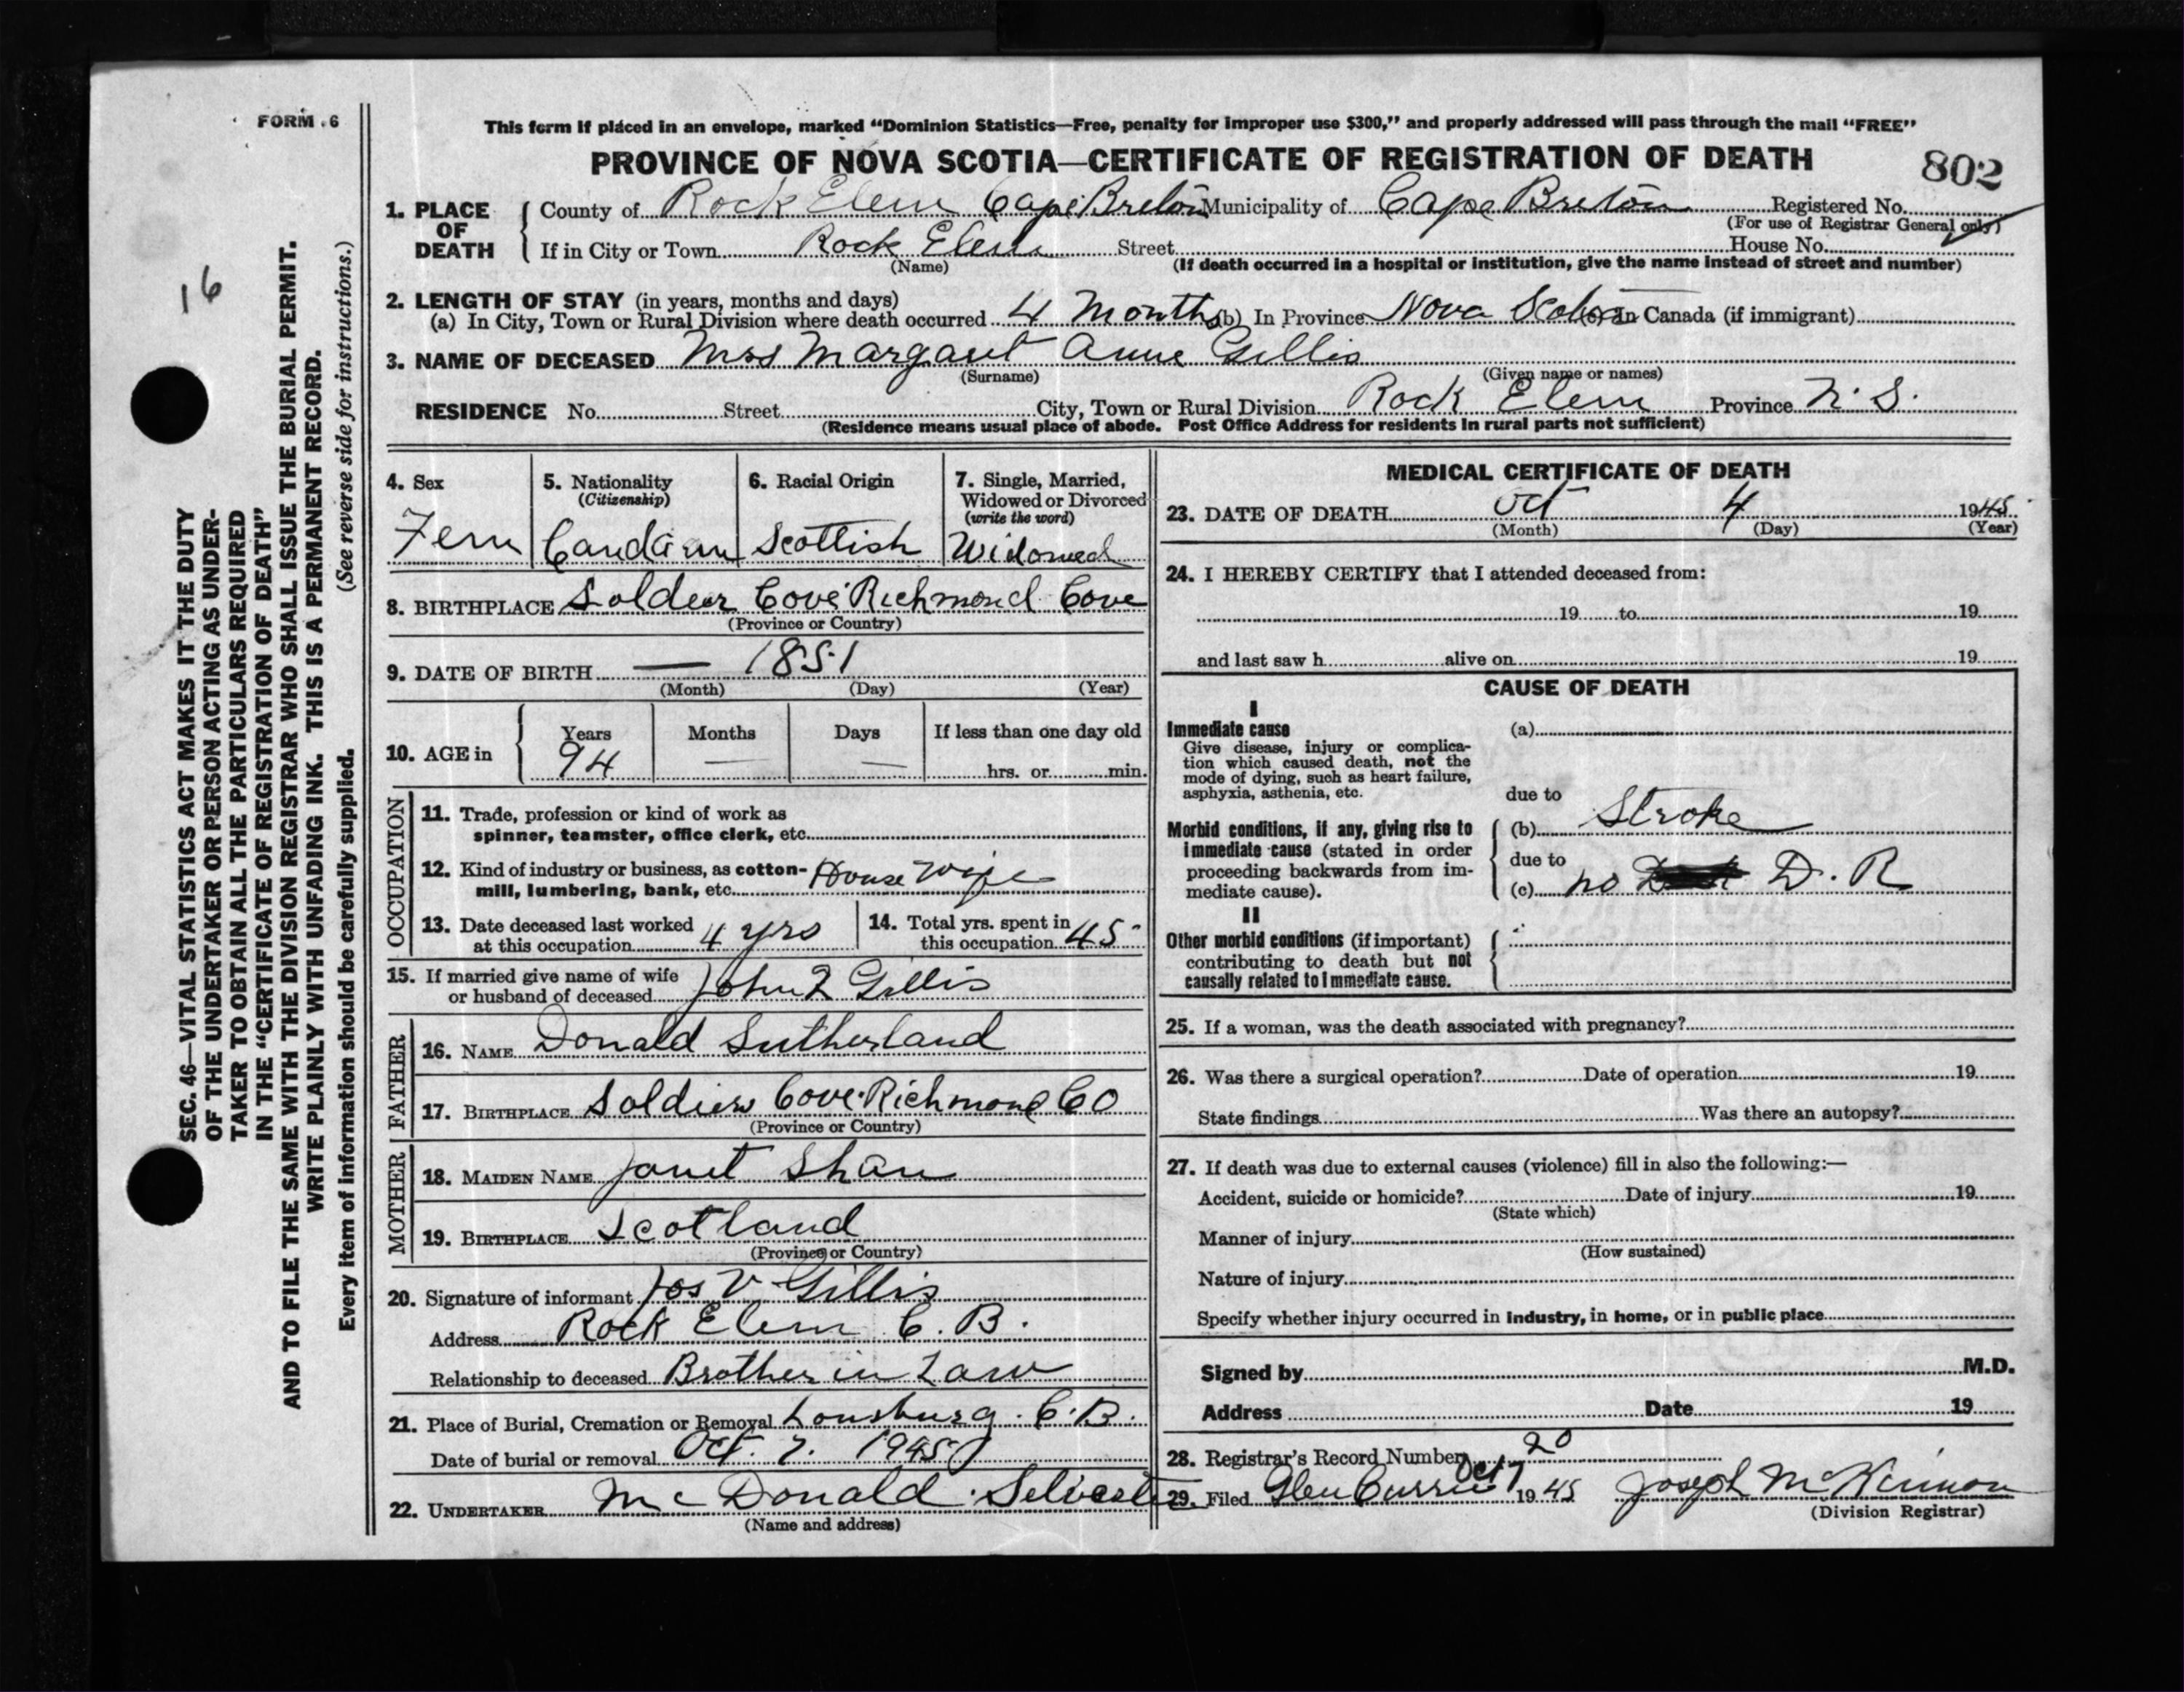 FORM 6
This form if placed in an envelope, marked “Dominion Statistics—Free, penalty for improper use $300,” and properly addressed will pass through the mail “FREE”
PROVINCE OF NOVA SCOTIA—CERTIFICATE OF REGISTRATION OF DEATH
802
16
SEC. 46—VITAL STATISTICS ACT MAKES IT THE DUTY
OF THE UNDERTAKER OR PERSON ACTING AS UNDER-
TAKER TO OBTAIN ALL THE PARTICULARS REQUIRED
IN THE “CERTIFICATE OF REGISTRATION OF DEATH”
AND TO FILE THE SAME WITH THE DIVISION REGISTRAR WHO SHALL ISSUE THE BURIAL PERMIT.
WRITE PLAINLY WITH UNFADING INK. THIS IS A PERMANENT RECORD.
Every item of information should be carefully supplied. (See reverse side for instructions.)
1. PLACE OF DEATH
County of Rock Elem Cape Breton Municipality of Cape Breton Registered No.
(For use of Registrar General only)
If in City or Town Rock Elem Street House No.
(Name) (If death occurred in a hospital or institution, give the name instead of street and number)
2. LENGTH OF STAY (in years, months and days)
(a) In City, Town or Rural Division where death occurred 4 Months (b) In Province Nova Scotia (c) In Canada (if immigrant)
3. NAME OF DECEASED Mrs Margaret Anne Gillis
(Surname) (Given name or names)
RESIDENCE No. Street City, Town or Rural Division Rock Elem Province N. S.
(Residence means usual place of abode. Post Office Address for residents in rural parts not sufficient)
4. Sex
Fem
5. Nationality
(Citizenship)
6. Racial Origin
Scottish
7. Single, Married,
Widowed or Divorced
(write the word)
Widowed
8. BIRTHPLACE Soldier Cove Richmond Cove
(Province or Country)
9. DATE OF BIRTH — 1851
(Month) (Day) (Year)
10. AGE in
Years Months Days If less than one day old
94 — — hrs. or min.
OCCUPATION
11. Trade, profession or kind of work as
spinner, teamster, office clerk, etc.
12. Kind of industry or business, as cotton-
mill, lumbering, bank, etc. House Wife
13. Date deceased last worked
at this occupation 4 yrs
14. Total yrs. spent in
this occupation 45
15. If married give name of wife
or husband of deceased John L Gillis
FATHER
16. NAME Donald Sutherland
17. BIRTHPLACE Soldiers Cove Richmond CO
(Province or Country)
MOTHER
18. MAIDEN NAME Janet Shaw
19. BIRTHPLACE Scotland
(Province or Country)
20. Signature of informant Jos V Gillis
Address Rock Elem C. B.
Relationship to deceased Brother in Law
21. Place of Burial, Cremation or Removal Lousburg. C. B.
Date of burial or removal Oct. 7. 1945
22. UNDERTAKER Mc Donald
(Name and address)
MEDICAL CERTIFICATE OF DEATH
23. DATE OF DEATH Oct 4 1945
(Month) (Day) (Year)
24. I HEREBY CERTIFY that I attended deceased from:
19 to 19
and last saw h alive on 19
CAUSE OF DEATH
I
Immediate cause (a)
Give disease, injury or complica-
tion which caused death, not the
mode of dying, such as heart failure,
asphyxia, asthenia, etc.
due to
Morbid conditions, if any, giving rise to
immediate cause (stated in order
proceeding backwards from im-
mediate cause).
(b) Stroke
due to
(c) no D. R
II
Other morbid conditions (if important)
contributing to death but not
causally related to immediate cause.
25. If a woman, was the death associated with pregnancy?
26. Was there a surgical operation? Date of operation 19
State findings Was there an autopsy?
27. If death was due to external causes (violence) fill in also the following:—
Accident, suicide or homicide? Date of injury 19
(State which)
Manner of injury
(How sustained)
Nature of injury
Specify whether injury occurred in industry, in home, or in public place
Signed by M.D.
Address Date 19
28. Registrar's Record Number 20
29. Filed Oct 7 1945 Joseph McKinnon
(Division Registrar)